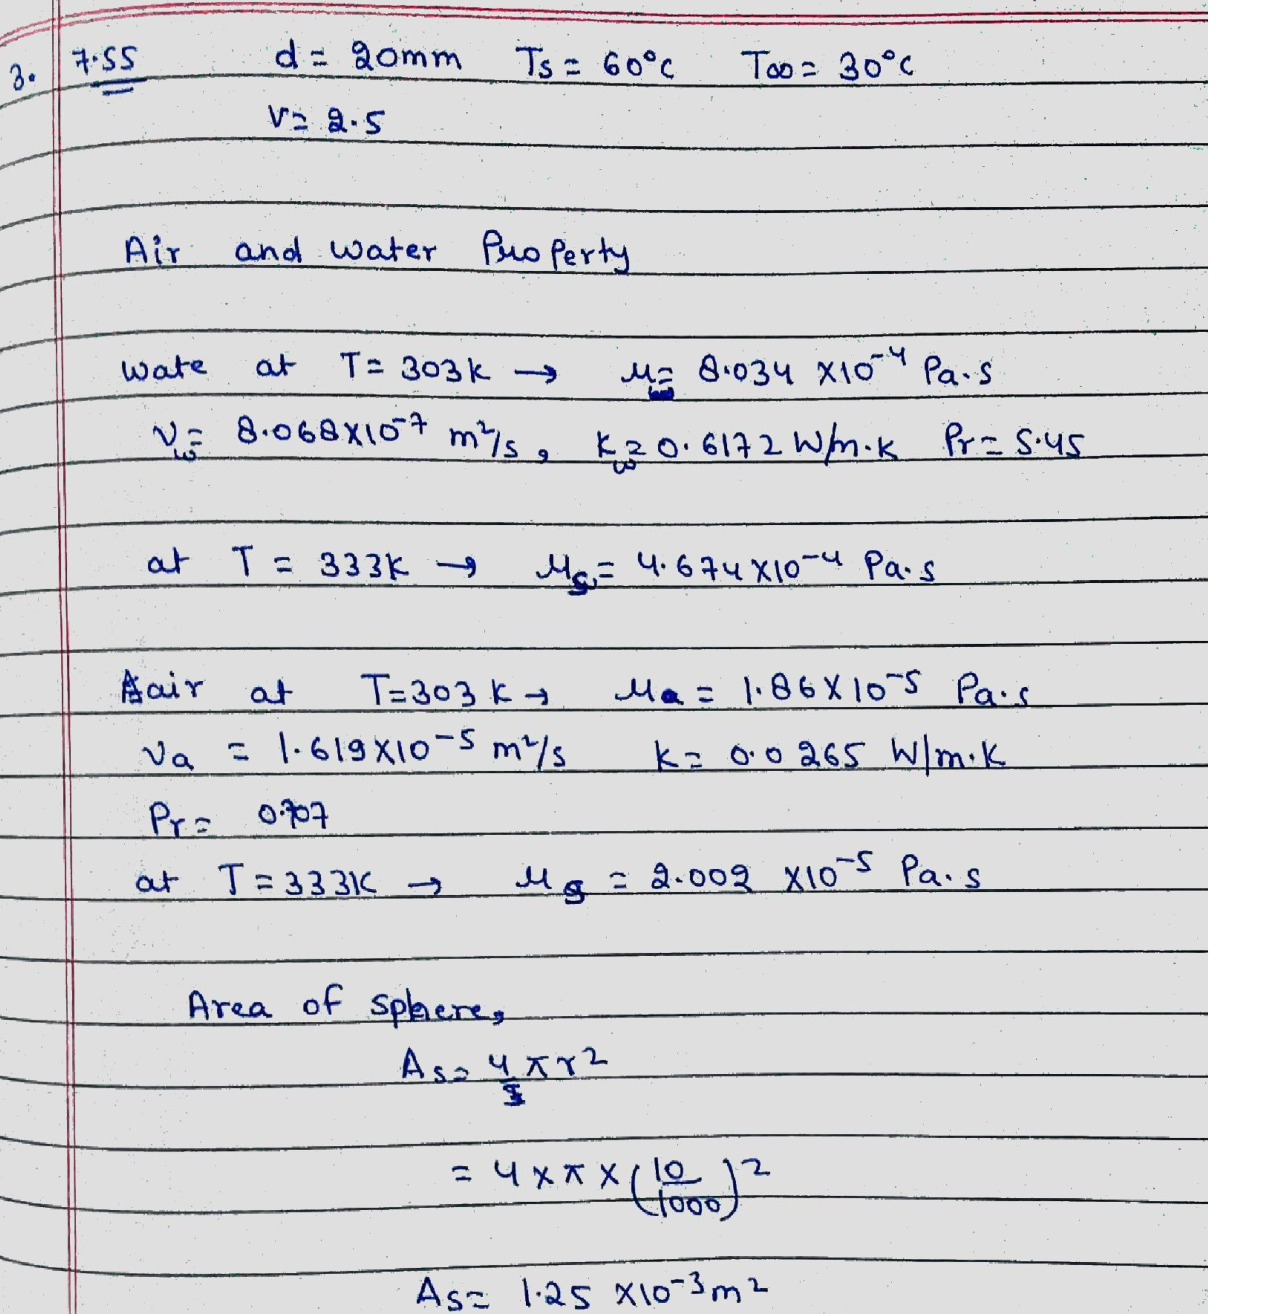 3. 7.55 d = 20mm Ts = 60°C T∞ = 30°C
V = 2.5
Air and water Property
wate at T = 303K → μ = 8.034 ×10⁻⁴ Pa.s
νw = 8.068×10⁻⁷ m²/s, Kw = 0.6172 W/m.K Pr = 5.45
at T = 333K → μs = 4.674×10⁻⁴ Pa.s
Aair at T=303K → μa = 1.86×10⁻⁵ Pa.s
νa = 1.619×10⁻⁵ m²/s K = 0.0265 W/m.K
Pr = 0.707
at T = 333K → μs = 2.002 ×10⁻⁵ Pa.s
Area of sphere,
As = 4πr²
= 4 × π × (10/1000)²
As = 1.25 ×10⁻³ m²